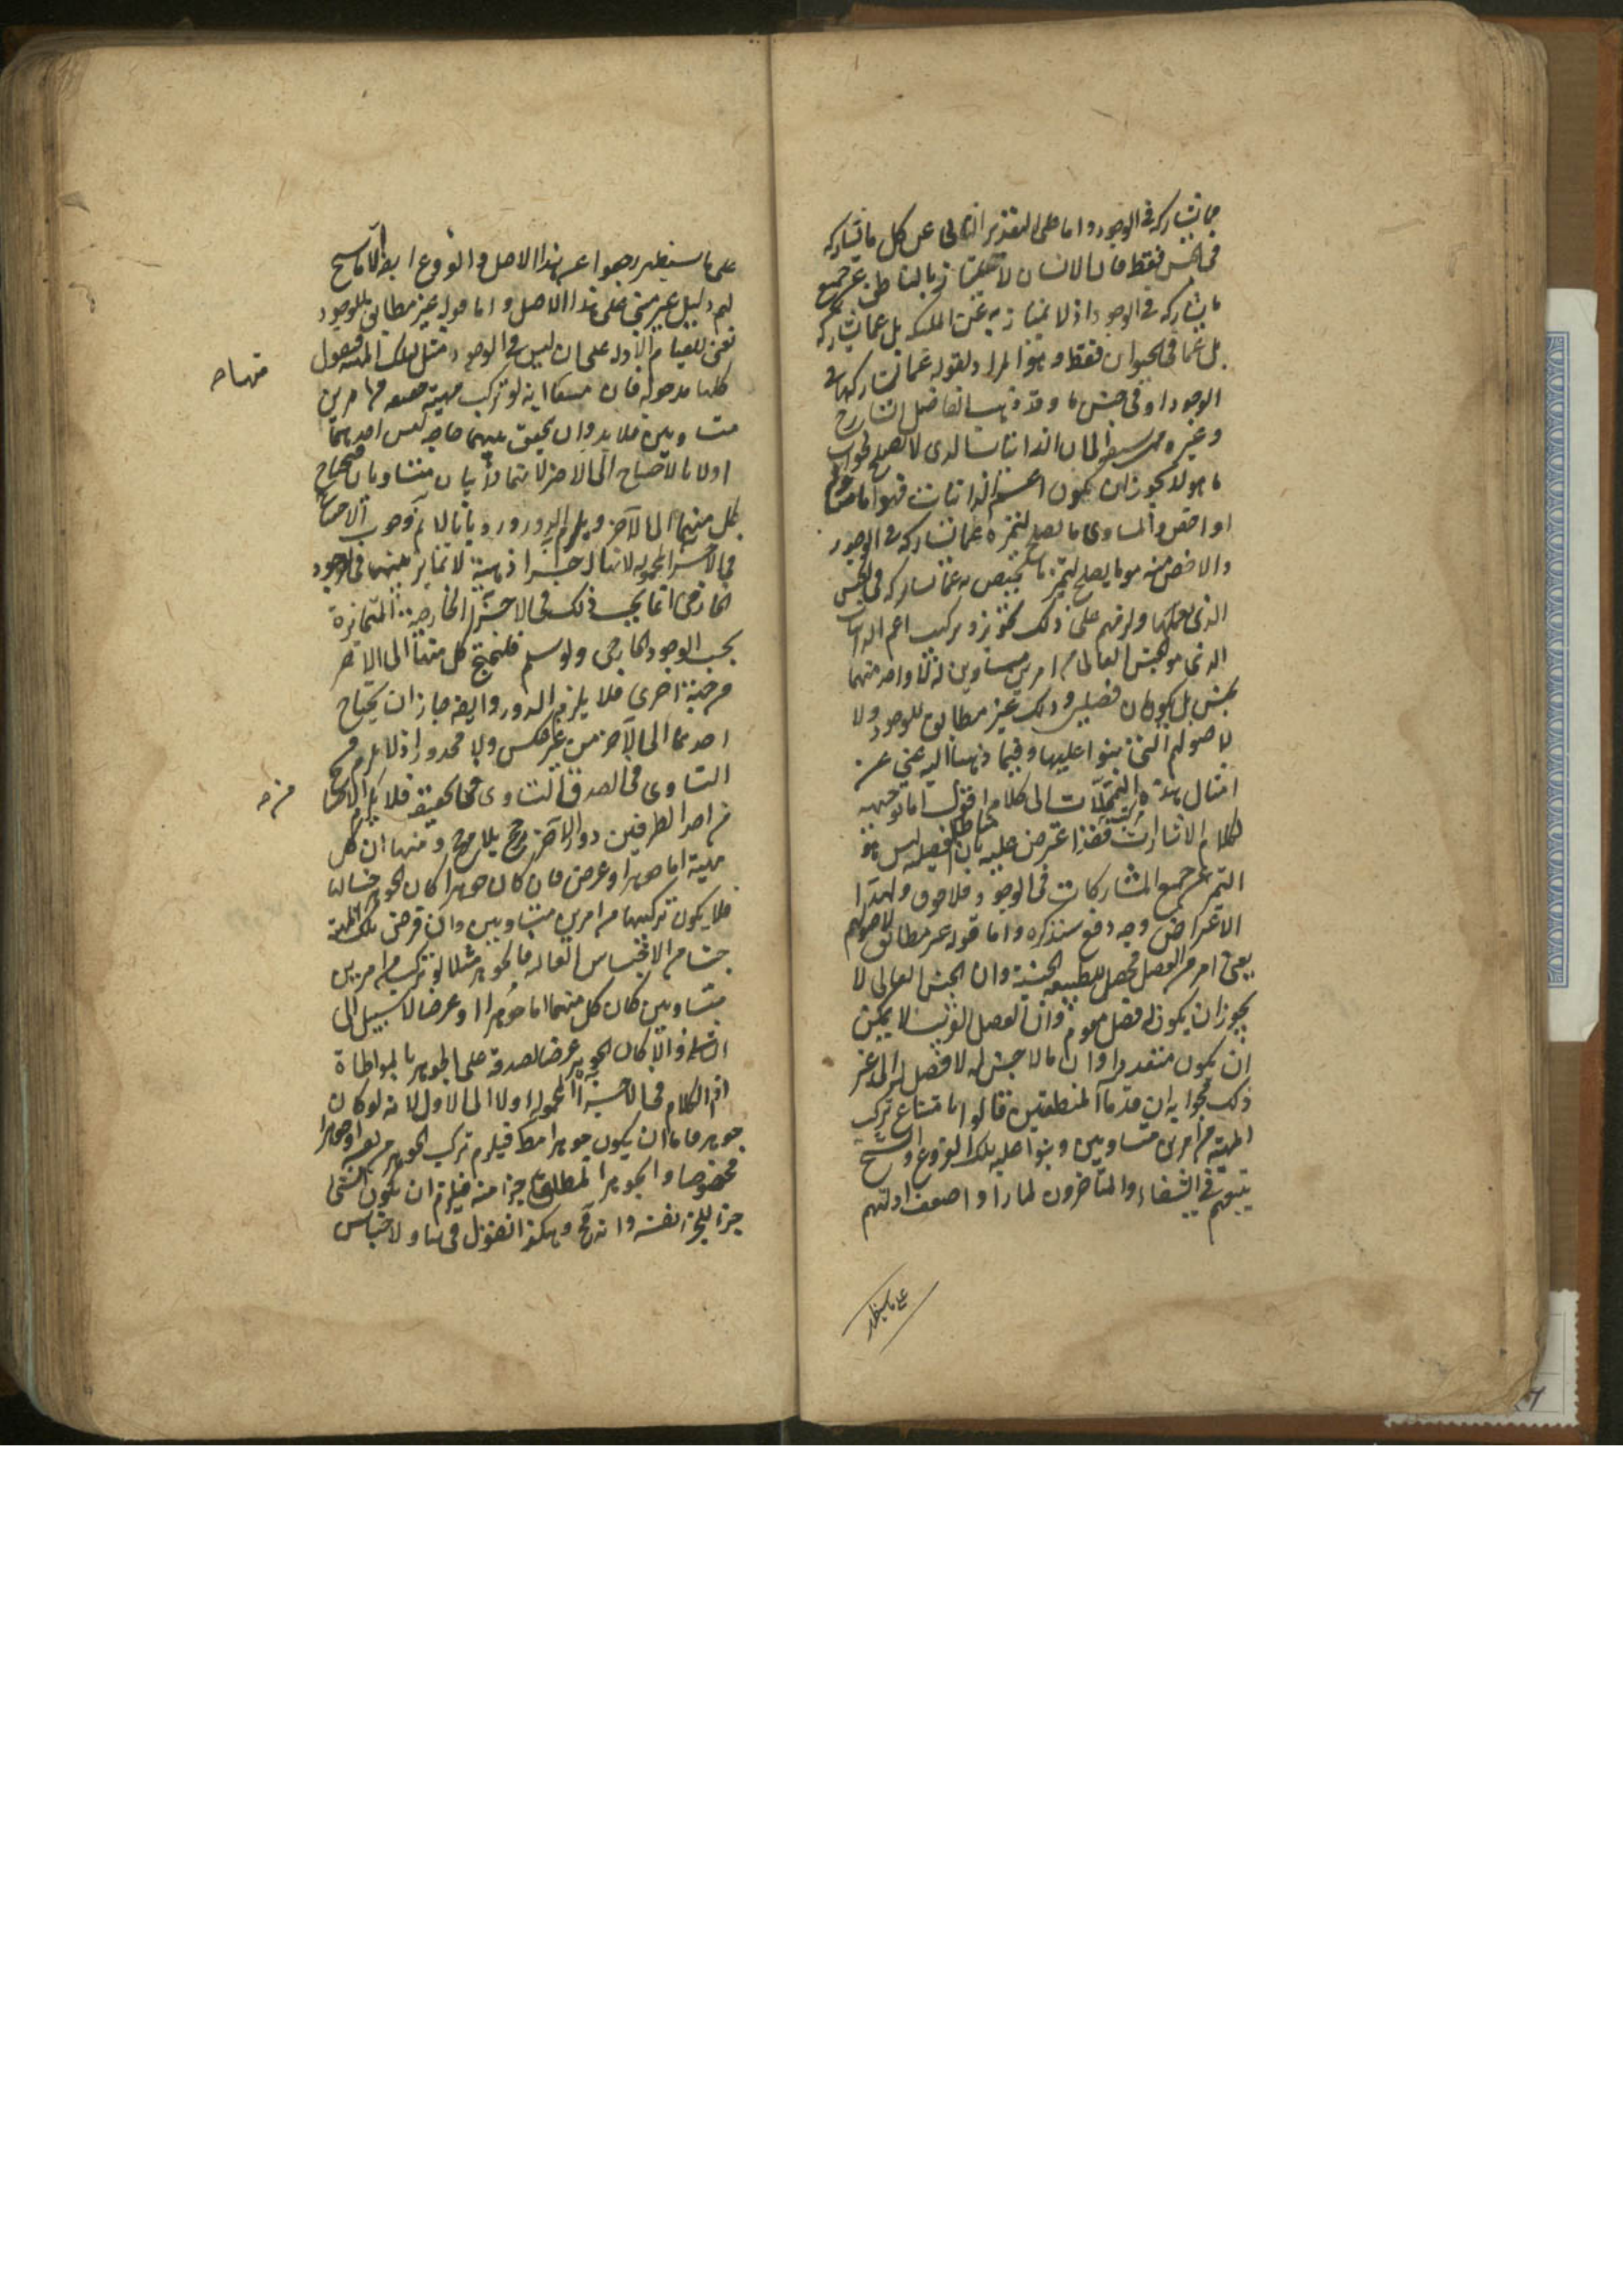 عما يشاركه في الوجود واما على التقدير الثاني عن كل ما يشاركه
في الجنس فقط فان الانسان لا يمتاز بالناطق عن جميع
ما يشاركه في الوجود اذ لا يمتاز به عن الملئكة بل عما يشاركه
بل عما في الحيوان فقط وهو المراد بقوله عما يشاركها في
الوجود او في جنس ما وقد ذهب الفاضل الشارح
وغيره الى ان الذاتيات الذي لا يصلح لجواب
ما هو لا يجوز ان يكون اعم الذاتيات فهو اما مساو
او اخص والمساوي ما يصلح لتميزه عما يشاركه في الوجود
والاخص منه هو ما يصلح لتميز ما يختص به عما يشاركه في الجنس
الذي يعمها ولزمهم على ذلك تجويز تركيب اعم الذاتيات
الذي هو الجنس العالي من امرين متساويين له لا واحد منهما
بجنس بل يكونان فصلين وذلك غير مطابق للوجود ولا
لاصولهم التي بنوا عليها وفيما ذهبنا اليه غنى عن
امثال هذه التمحلات الى كلامه اقول اما توجيهه
لكلام الاشارات فقد اعترض عليه بان الفصل ليس هو
التميز عن جميع المشاركات في الوجود فلا صوف ولهذا
الاعتراض وجه دفع سنذكره واما قوله غير مطابق لاصولهم
يعني امر من الفصل محصل للطبيعة الجنسية وان الجنس العالي لا
يجوز ان يكون له فصل مقوم وان الفصل القريب لا يمكن
ان يكون متعددا وان ما لا جنس له لا فصل له الى غير
ذلك فجوابه ان قدماء المنطقيين قالوا بامتناع تركب
المهية من امرين متساويين وبنوا عليه تلك الفروع والشيخ
يتبعهم في الشفاء والمتأخرون لما رأوا ضعف ادلتهم
على ما سيظهر
على ما سيظهر رجعوا عن هذا الاصل والفروع ايضا الا ما سنح
لهم دليل غير مبني على هذا الاصل واما قوله غير مطابق للوجود
يعني لقيام الادلة على ان ليس في الوجود مثل تلك المهية فنقول
كلها مدخولة فان منها انه لو تركب مهية حقيقية من امرين
متساويين فلا بد وان يحقق بينهما حاجة ليس احدهما
اولى بالاحتياج الى الآخر لانهما ذاتيان متساويان فيحتاج
كل منهما الى الآخر ويلزم الدور ورد بانا لا نم وجوب الاحتياج
في الاجزاء المحمولة لانها اجزاء ذهنية لا تمايز بينهما في الوجود
الخارجي انما يجب ذلك في الاجزاء الخارجية المتمايزة
بحسب الوجود الخارجي ولو سلم فليحتج كل منهما الى الآخر
من جهة اخرى فلا يلزم الدور وايضا جاز ان يحتاج
احدهما الى الآخر من غير عكس ولا محذور اذ لا يلزم من
التساوي في الصدق التساوي في الحقيقة فلا يلزم الاحتياج
من احد الطرفين دون الآخر ترجيح بلا مرجح ومنها ان كل
مهية اما جوهر او عرض فان كان جوهرا كان الجوهر جنسا لها
فلا يكون تركبها من امرين متساويين وان فرض تلك المهية
جنسا من الاجناس العالية فالجوهر مثلا لو تركب من امرين
متساويين كان كل منهما اما جوهرا او عرضا لا سبيل الى
الثاني والا كان الجوهر عرضا لصدقه على الجوهر بالمواطاة
اذ الكلام في الاجزاء المحمولة ولا الى الاول لانه لو كان
جوهرا فاما ان يكون جوهرا مطلقا فيلزم تركب الجوهر من نفسه او جوهرا
مخصوصا والجوهر المطلق جزء منه فيلزم ان يكون الشيء
جزءا لجزء نفسه وانه مح وهكذا نقول في سائر الاجناس
منها حه
من حه